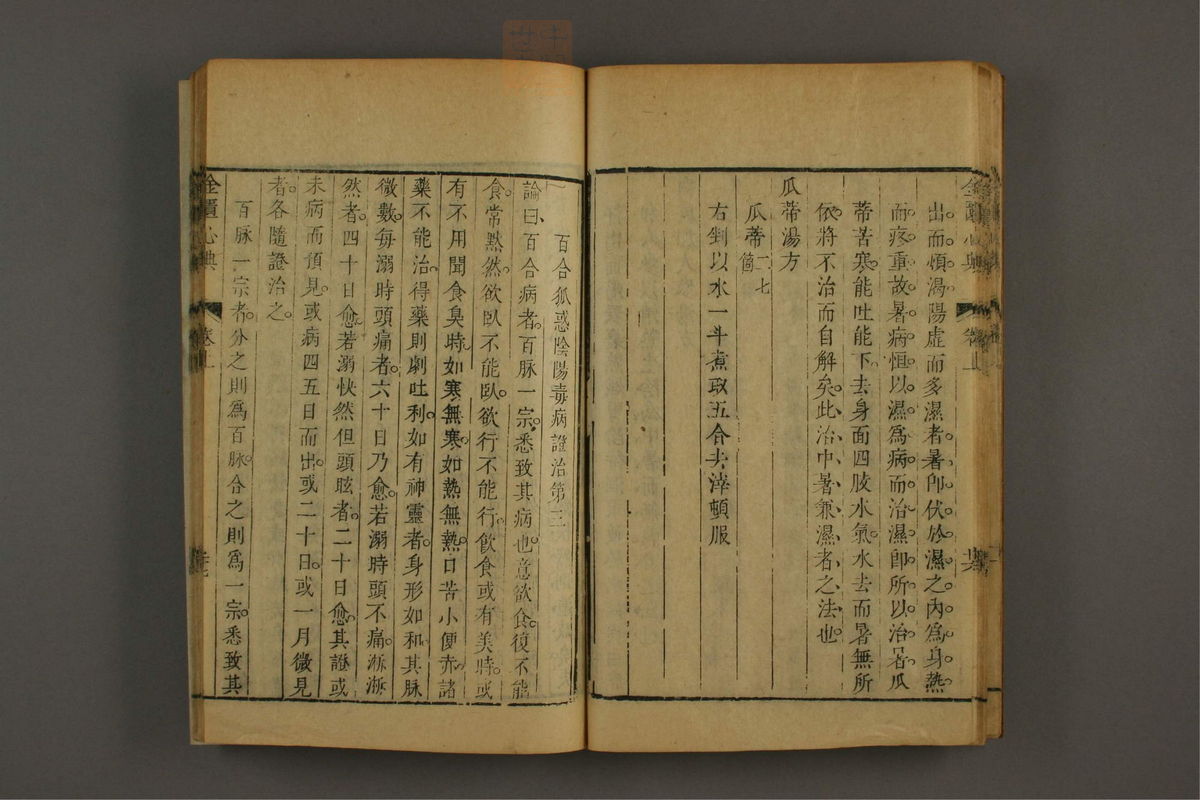 金匱心典 卷上
出而煩渴陽虛而多濕者暑卽伏於濕之內爲身熱
而疼重故暑病恒以濕爲病而治濕卽所以治暑瓜
蒂苦寒能吐能下去身面四肢水氣水去而暑無所
依將不治而自解矣此治中暑兼濕者之法也
瓜蒂湯方
瓜蒂二七箇
右剉以水一斗煮取五合去滓頓服
百合狐惑陰陽毒病證治第三
論曰百合病者百脉一宗悉致其病也意欲食復不能
食常默然欲臥不能臥欲行不能行飮食或有美時或
有不用聞食臭時如寒無寒如熱無熱口苦小便赤諸
藥不能治得藥則劇吐利如有神靈者身形如和其脉
微數每溺時頭痛者六十日乃愈若溺時頭不痛淅淅
然者四十日愈若溺快然但頭眩者二十日愈其證或
未病而預見或病四五日而出或二十日或一月微見
者各隨證治之
百脉一宗者分之則爲百脉合之則爲一宗悉致其
金匱心典 卷上